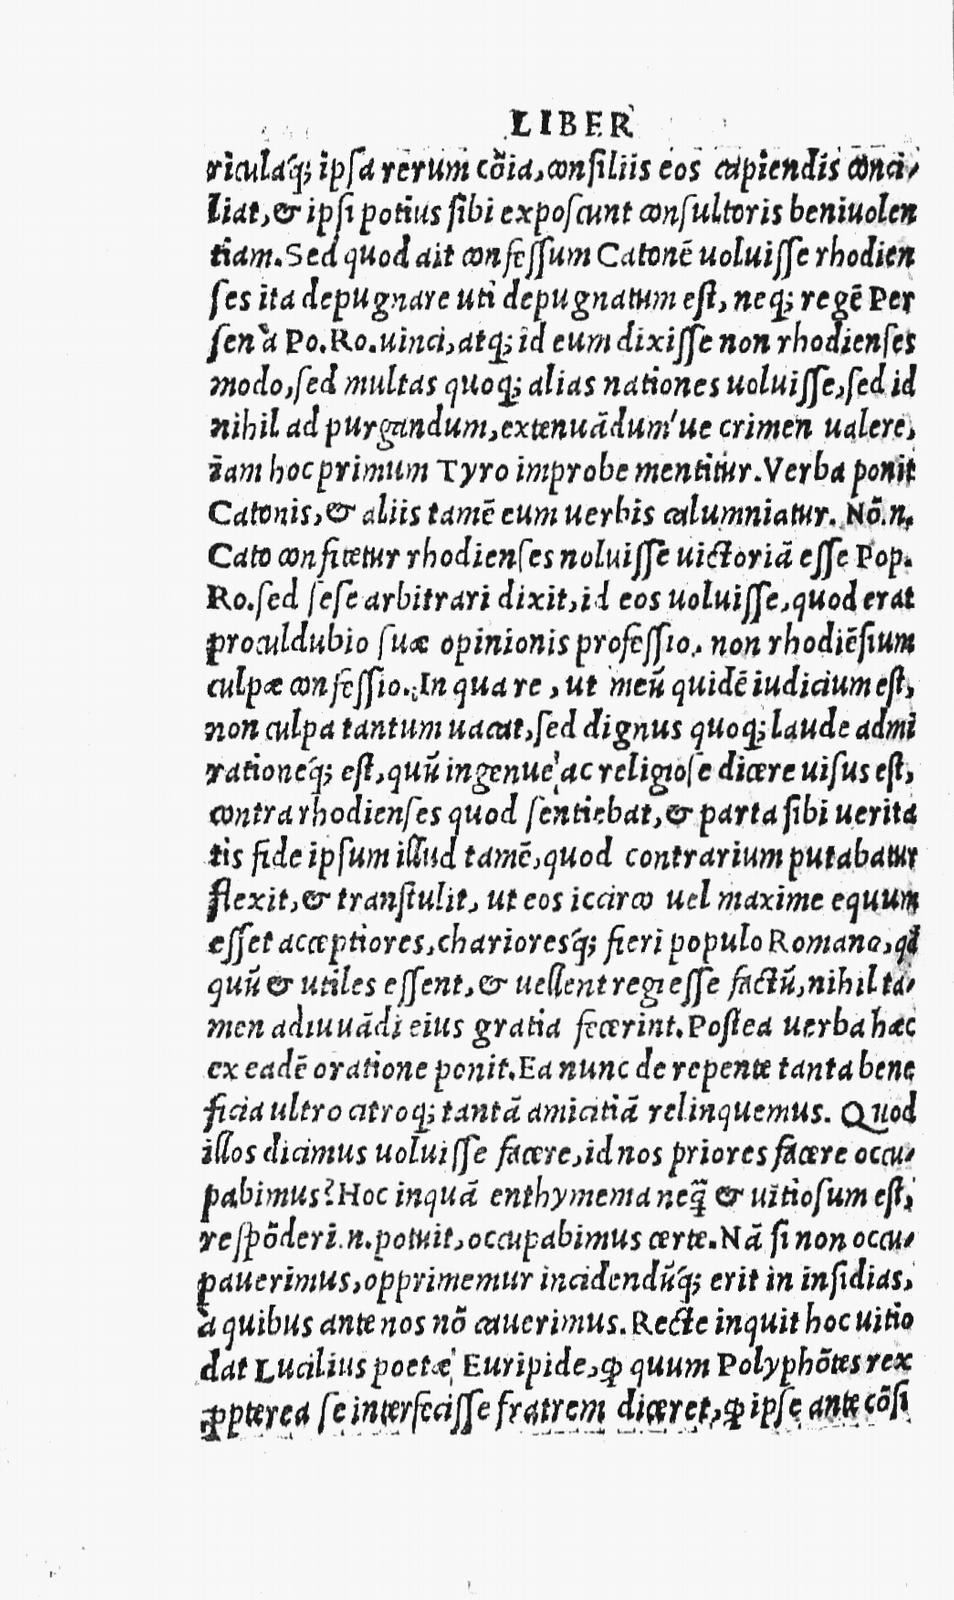 LIBER
riculaq́; ipſa rerum cõia, conſiliis eos capiendis conci-
liat, & ipſi potius ſibi expoſcunt conſultoris beniuolen
tiam. Sed quod ait confeſſum Catonẽ uoluiſſe rhodien
ſes ita depugnare uti depugnatum eſt, neq; regẽ Per
ſen à Po. Ro. uinci, atq; id eum dixiſſe non rhodienſes
modo, ſed multas quoq; alias nationes uoluiſſe, ſed id
nihil ad purgandum, extenuãdum'ue crimen ualere,
iam hoc primum Tyro improbe mentitur. Verba ponit
Catonis, & aliis tamẽ eum uerbis calumniatur. Nõ.n.
Cato confitetur rhodienſes noluiſſe uictoriã eſſe Pop.
Ro. ſed ſeſe arbitrari dixit, id eos uoluiſſe, quod erat
proculdubio ſuæ opinionis profeſſio, non rhodiẽſium
culpæ confeſſio. In qua re, ut meũ quidẽ iudicium eſt,
non culpa tantum uacat, ſed dignus quoq; laude admi
rationeq́; eſt, quũ ingenue ac religioſe dicere uiſus eſt,
contra rhodienſes quod ſentiebat, & parta ſibi uerita
tis fide ipſum illud tamẽ, quod contrarium putabatur
flexit, & tranſtulit, ut eos iccirco uel maxime equum
eſſet acceptiores, charioresq́; fieri populo Romano, qđ
quũ & utiles eſſent, & uellent regi eſſe factũ, nihil ta-
men adiuuãdi eius gratia fecerint. Poſtea uerba hæc
ex eadẽ oratione ponit. Ea nunc de repente tanta bene
ficia ultro citroq; tantã amicitiã relinquemus. Quod
illos dicimus uoluiſſe facere, id nos priores facere occu-
pabimus? Hoc inquã enthymema neq̃ & uitioſum eſt,
reſpõderi.n. potuit, occupabimus certe. Nã ſi non occu-
pauerimus, opprimemur incidendũq́; erit in inſidias,
à quibus ante nos nõ cauerimus. Recte inquit hoc uitio
dat Lucilius poetæ Euripide, ꝙ quum Polyphõtes rex
ꝓpterea ſe interfeciſſe fratrem diceret, ꝙ ipſe ante cõſi